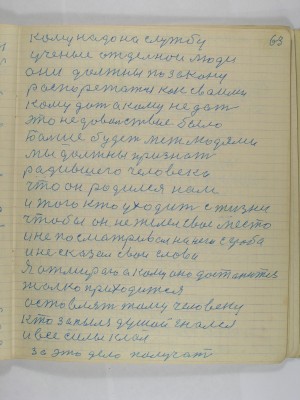 63
кому надо на службу
ученые отделной люди
они должны по закону
распоретатся как своими
кому дат акому недат
это недоволствие было
болше будет меж людями
мы должны признат
радившего человека
что он родился нам
и того кто уходит с жизни
чтобы он не жалел свое место
и не посматривал на него с узба
и не сказал свои слова
Я отмираю а кому оно достанется
только приходится
оставлят тому человеку
кто за пыля душой гнался
и все силы клал
за это дело получат